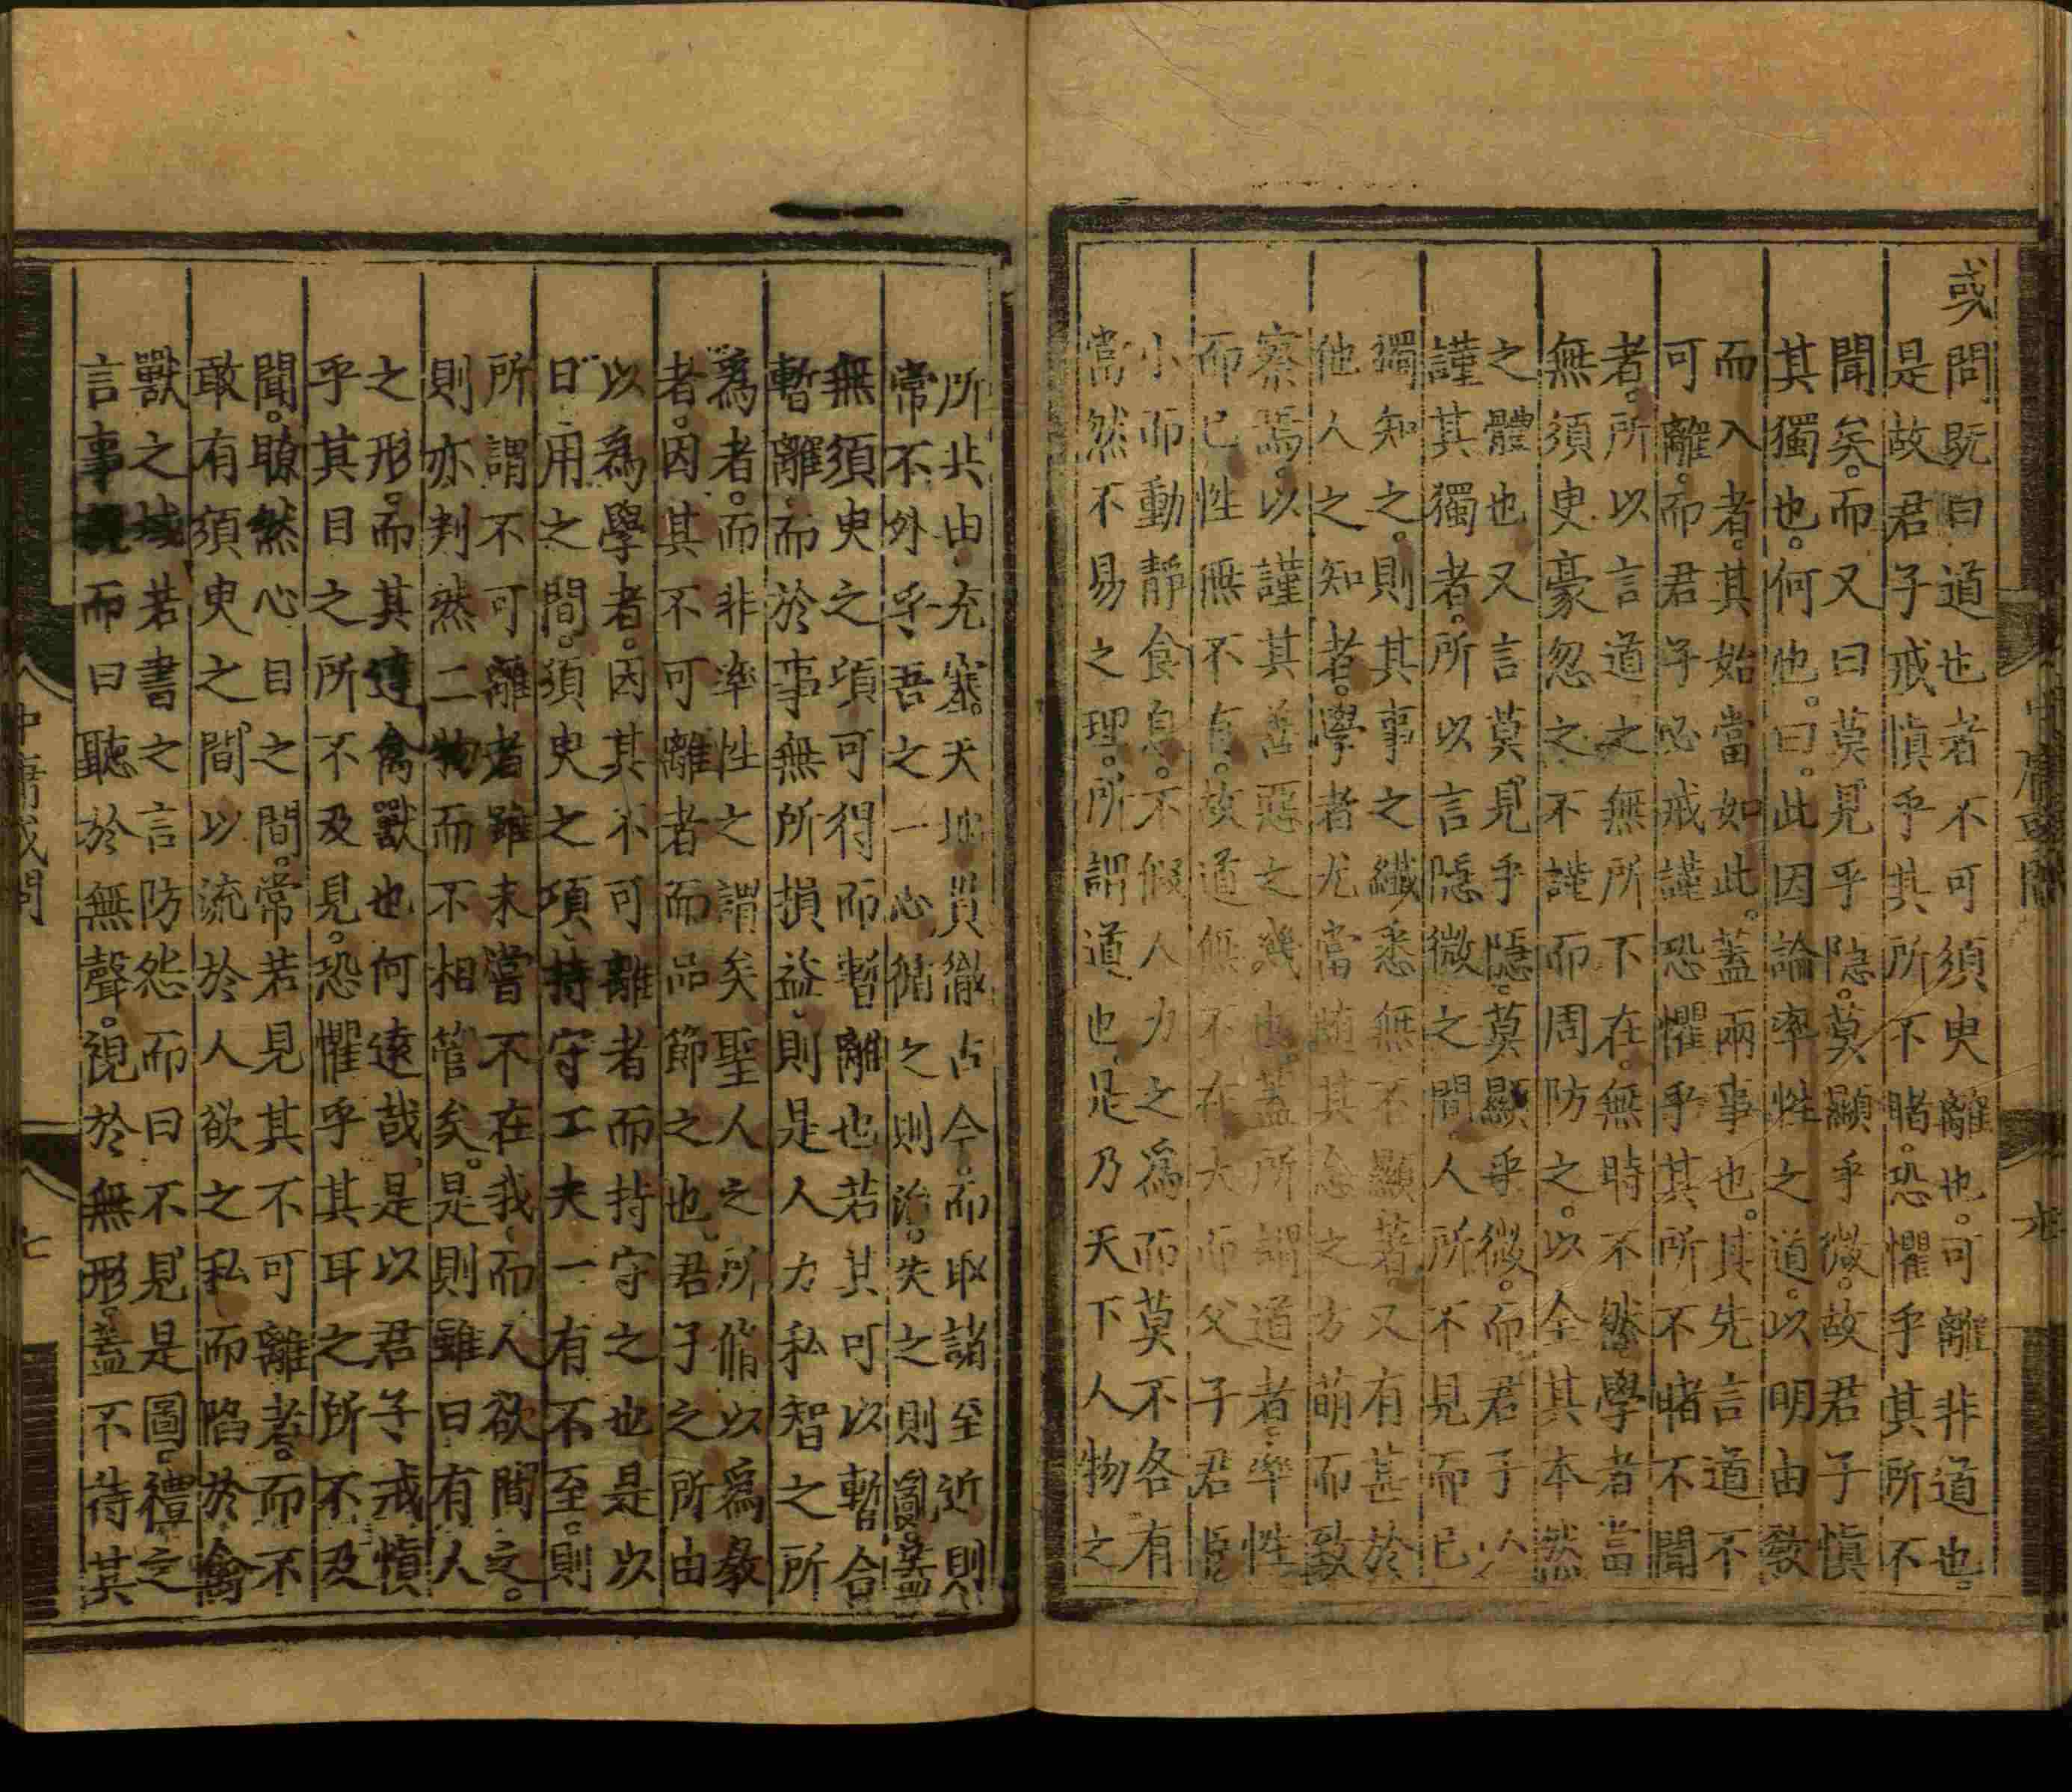 或問既曰道也者不可須臾離也可離非道也
是故君子戒愼乎其所不睹恐懼乎其所不
聞矣而又曰莫見乎隐莫顯乎微故君子愼
其獨也何也曰此因論率性之道以明由教
而入者其始當如此蓋兩事也其先言道不
可離而君子必戒謹恐懼乎其所不睹不聞
者所以言道之無所不在無時不然學者當
無須臾豪忽之不謹而周防之以全其本然
之體也又言莫見乎隱莫顯乎微而君子以
謹其獨者所以言隱微之間人所不見而己
獨知之則其事之纖悉無不顯著又有甚於
他人之知者學者尤當随其念之方萌而致
察焉以謹其善惡之幾也蓋所謂道者率性
而已性無不有故道無不在大而父子君臣
小而動靜食息不假人力之爲而莫不各有
當然不易之理所謂道也是乃天下人物之
所共由充塞天地貫徹古今而取諸至近則
常不外乎吾之一心循之則治失之則亂蓋
無須臾之頃可得而暫離也若其可以暫合
暫離而於事無所損益則是人力私智之所
爲者而非率性之謂矣聖人之所脩以爲敎
者因其不可離者而品節之也君子之所由
以爲學者因其不可離者而持守之也是以
日用之間須臾之頃持守工夫一有不至則
所謂不可離者雖未嘗不在我而人欲間之
則亦判然二物而不相管矣是則雖曰有人
之形而其違禽獸也何遠哉是以君子戒愼
乎其目之所不及見恐懼乎其耳之所不及
聞瞭然心目之間常若見其不可離者而不
敢有須臾之間以流於人欲之私而陷於禽
獸之域若書之言防怨而曰不見是圖禮之
言事親而曰聽於無聲視於無形蓋不待其
中庸或問
七